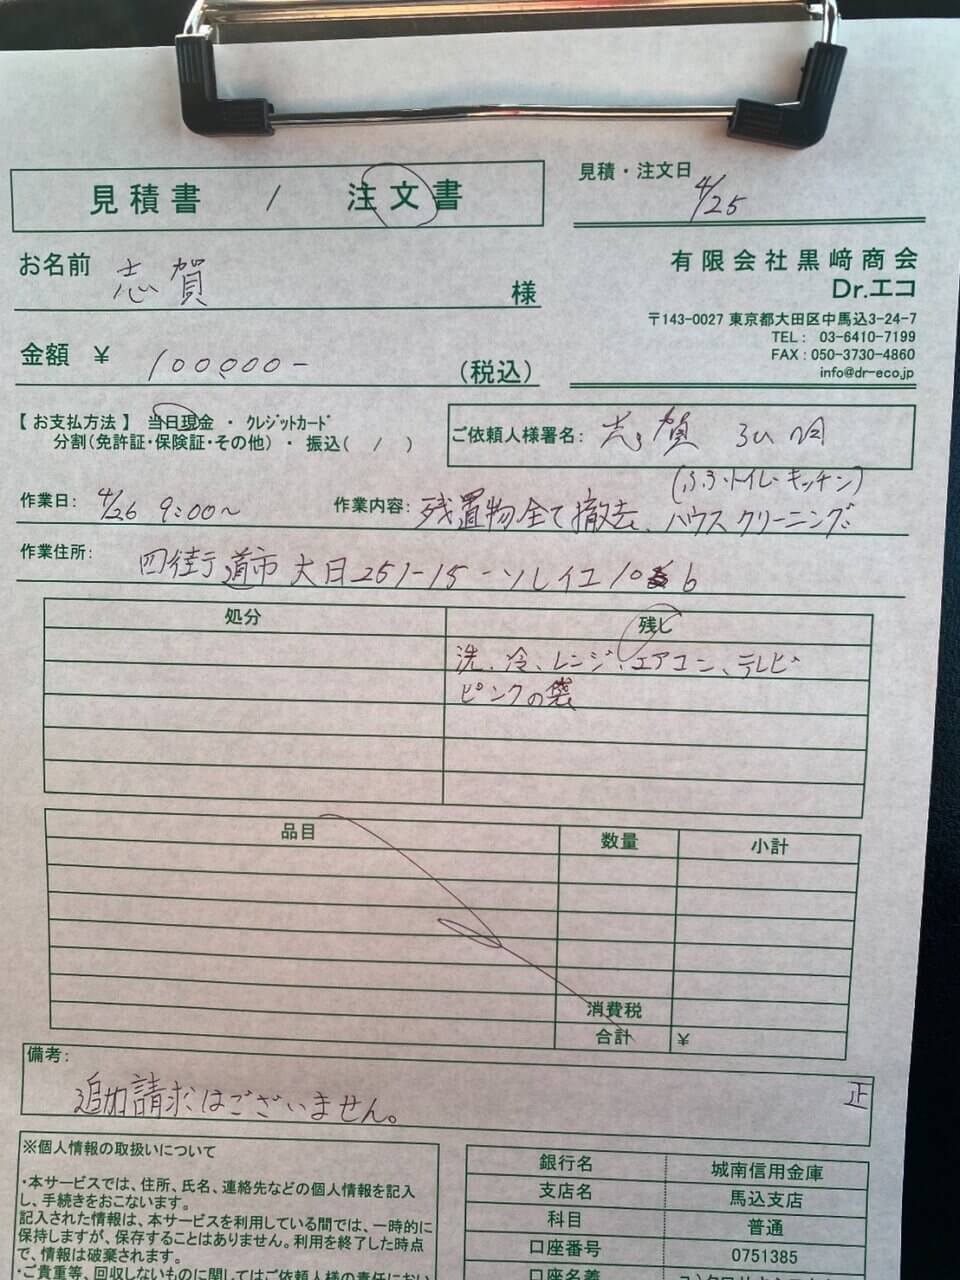 見積書 / 注文書
見積・注文日
4/25
お名前 志賀 様
有限会社黒﨑商会
Dr.エコ
〒143-0027 東京都大田区中馬込3-24-7
TEL： 03-6410-7199
FAX：050-3730-4860
info@dr-eco.jp
金額 ￥ 100,000- (税込)
【お支払方法】 当日現金 ・ クレジットカード
分割(免許証・保険証・その他) ・ 振込( / )
ご依頼人様署名： 志賀
(ふろ・トイレ・キッチン)
作業日： 4/26 9:00～ 作業内容： 残置物全て撤去、ハウスクリーニング
作業住所： 四街道市大日251-15-ソレイユ10 6
処分 残し
洗、冷、レンジ、エアコン、テレビ
ピンクの袋
品目 数量 小計
消費税
合計 ￥
備考：
追加請求はございません。
正
※個人情報の取扱いについて
・本サービスでは、住所、氏名、連絡先などの個人情報を記入
し、手続きをおこないます。
記入された情報は、本サービスを利用している間では、一時的に
保持しますが、保存することはありません。利用を終了した時点
で、情報は破棄されます。
・ご貴重等、回収しないものに関してはご依頼人様の責任におい
銀行名 城南信用金庫
支店名 馬込支店
科目 普通
口座番号 0751385
口座名義